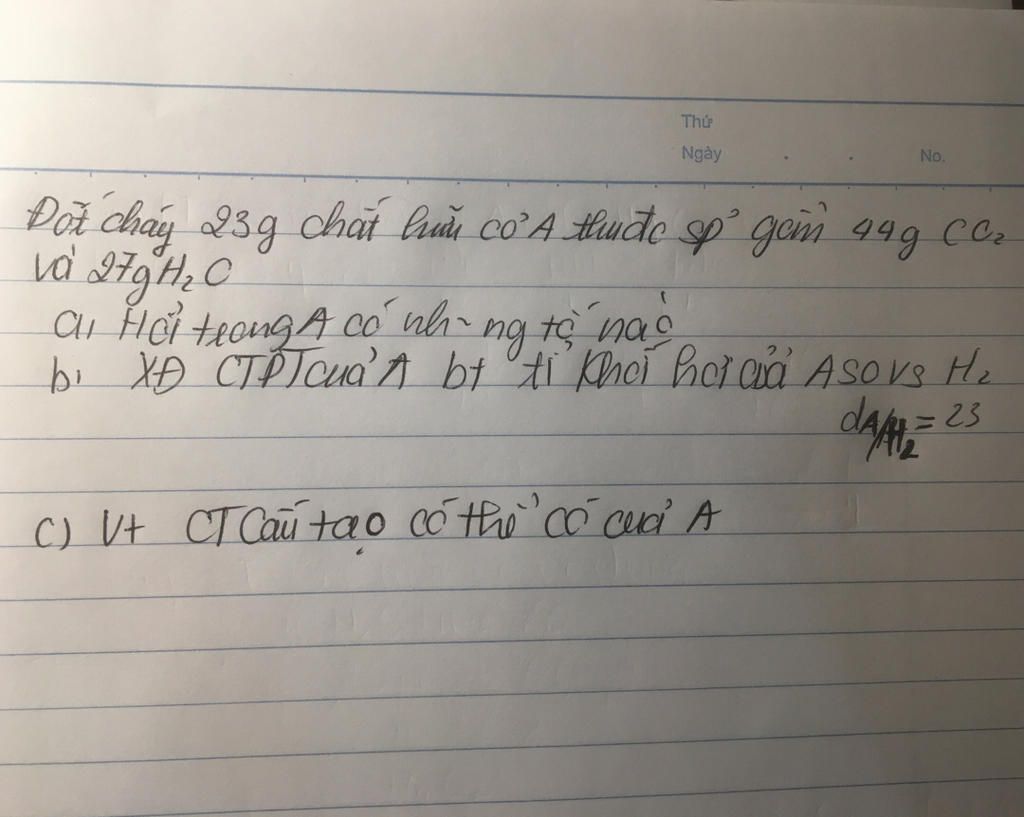 Thứ
Ngày . . No.
Đốt cháy 23g chất hữu cơ A thuđc sp gồm 44g CO2
và 27g H2O
a, Hỏi trong A có nh~ng tố nào
b, XĐ CTPT của A bt tỉ khối hơi của A so vs H2
dA/H2 = 23
c) Vt CT Cấu tạo có thể có của A